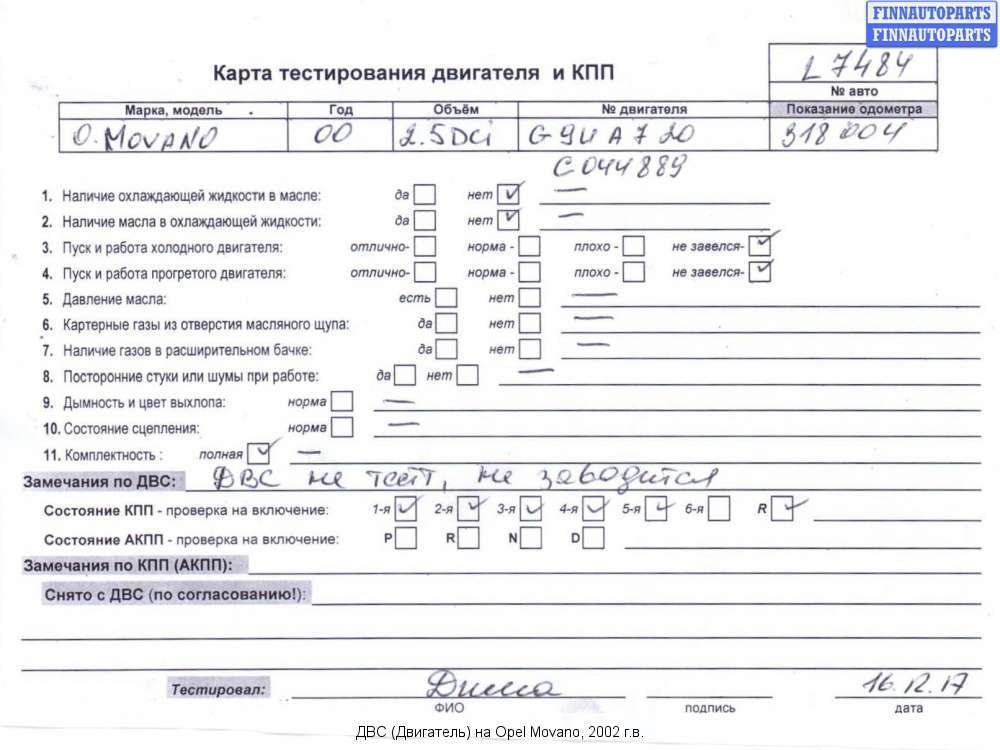 FINNAUTOPARTS
FINNAUTOPARTS
L7484
Карта тестирования двигателя и КПП
№ авто
Марка, модель Год Объём № двигателя Показание одометра
O. MOVANO 00 2.5DCi G9UA720 318004
C044889
1. Наличие охлаждающей жидкости в масле: да нет
2. Наличие масла в охлаждающей жидкости: да нет
3. Пуск и работа холодного двигателя: отлично- норма - плохо - не завелся-
4. Пуск и работа прогретого двигателя: отлично- норма - плохо - не завелся-
5. Давление масла: есть нет
6. Картерные газы из отверстия масляного щупа: да нет
7. Наличие газов в расширительном бачке: да нет
8. Посторонние стуки или шумы при работе: да нет
9. Дымность и цвет выхлопа: норма
10. Состояние сцепления: норма
11. Комплектность : полная
Замечания по ДВС: ДВС не тест, не заводится
Состояние КПП - проверка на включение: 1-я 2-я 3-я 4-я 5-я 6-я R
Состояние АКПП - проверка на включение: P R N D
Замечания по КПП (АКПП):
Снято с ДВС (по согласованию!):
Тестировал: Дима 16.12.17
ФИО подпись дата
ДВС (Двигатель) на Opel Movano, 2002 г.в.